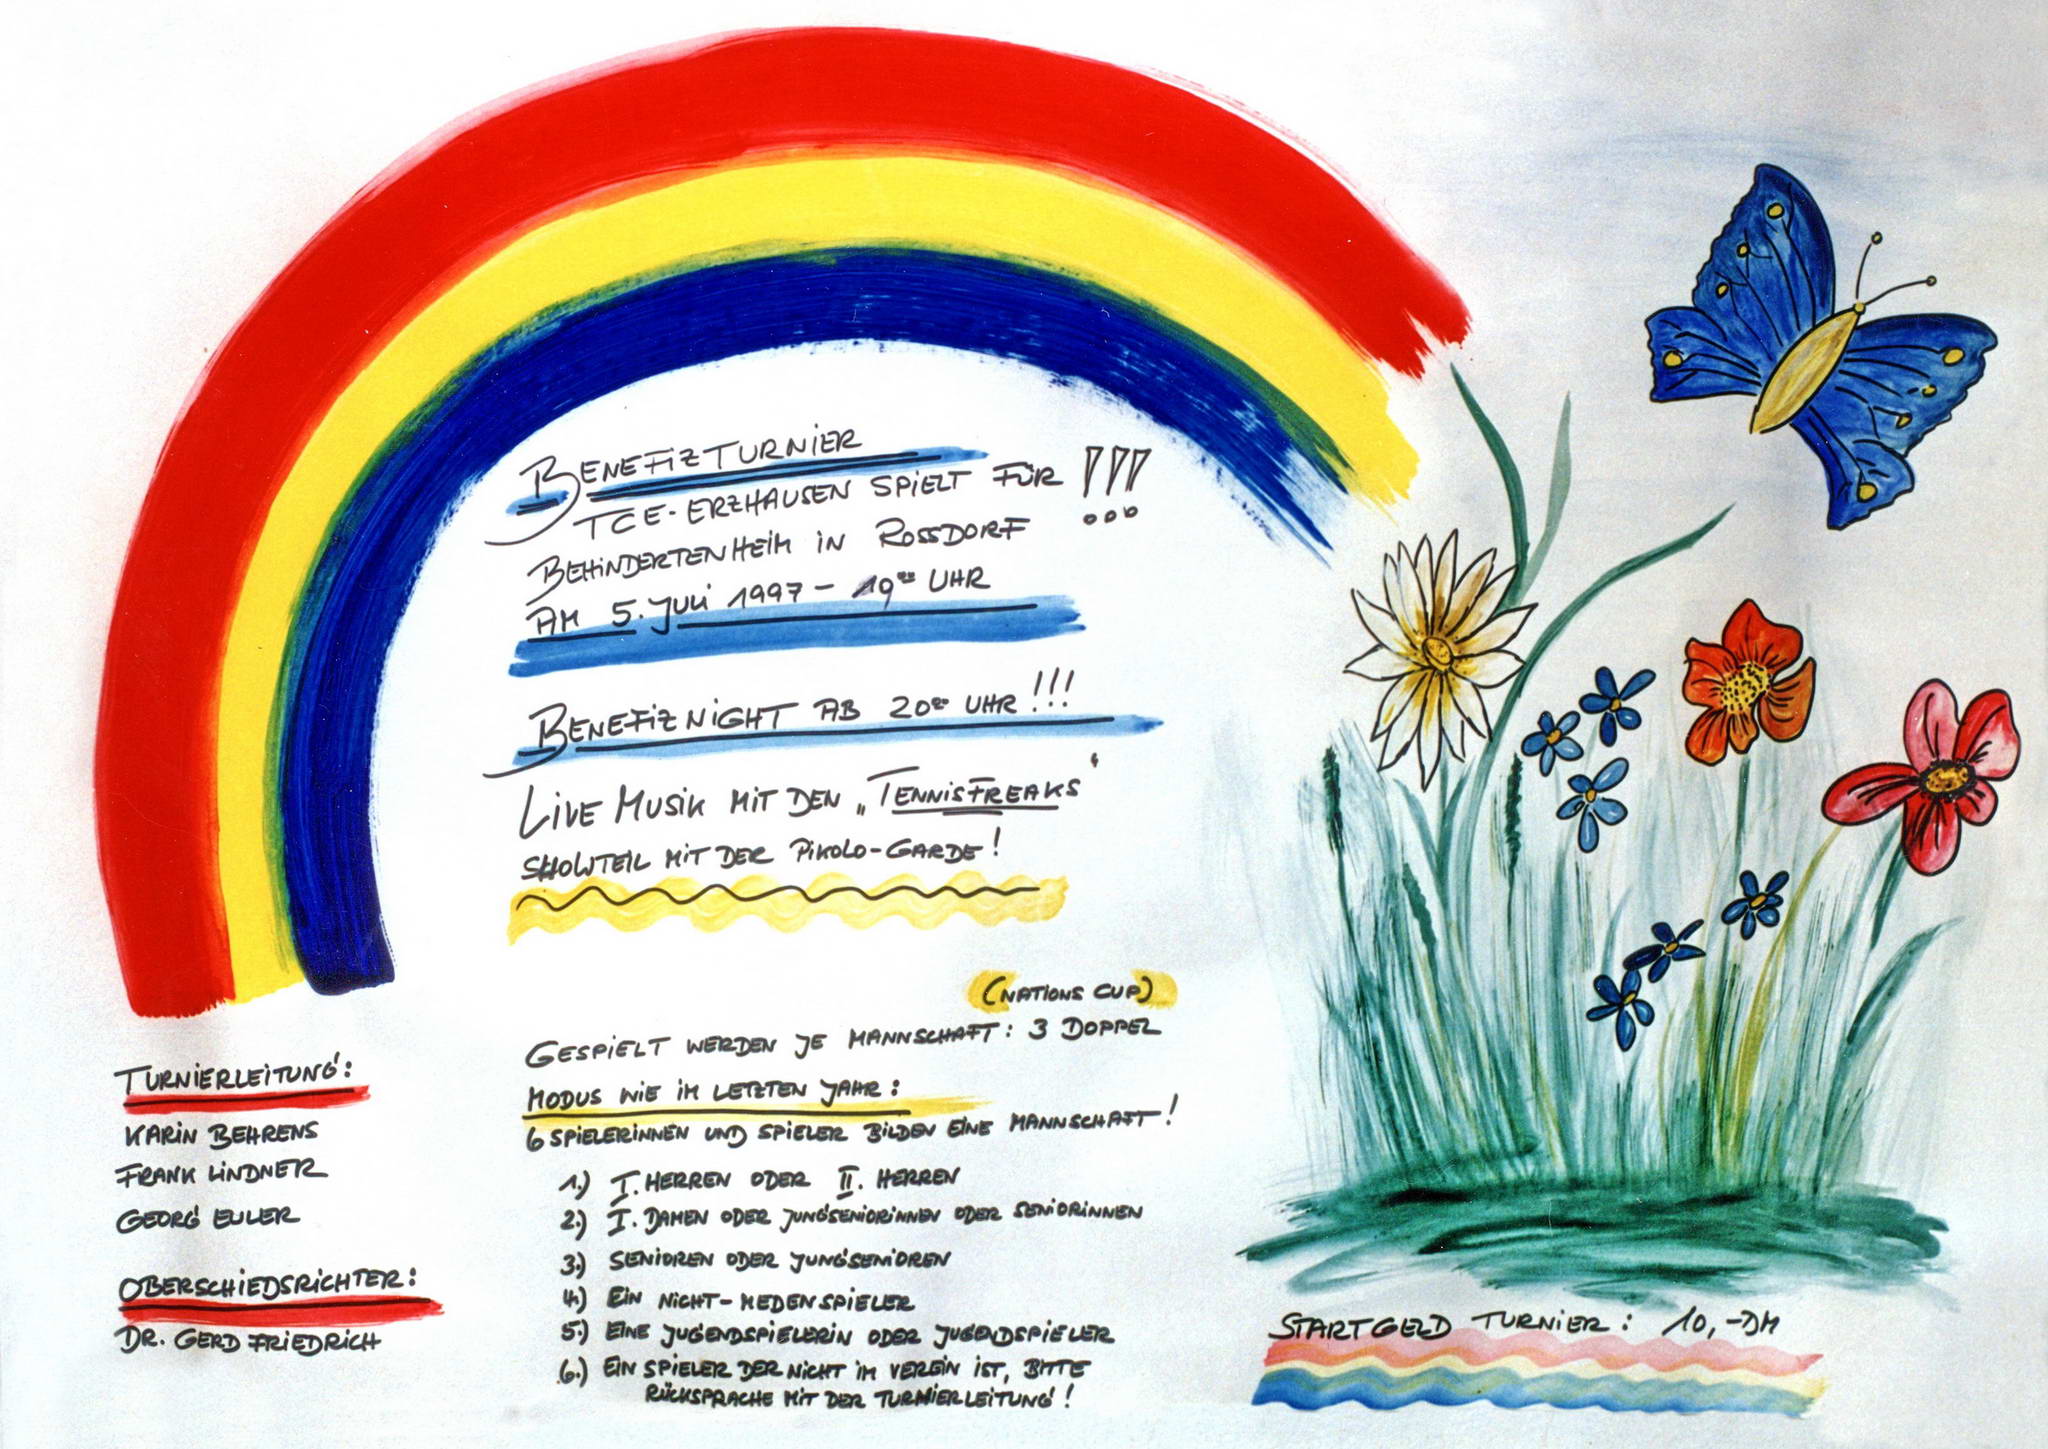 BENEFIZTURNIER
TCE-ERZHAUSEN SPIELT FÜR !!!
BEHINDERTENHEIM IN ROSSDORF
AM 5. JULI 1997 – 19⁰⁰ UHR
BENEFIZNIGHT AB 20⁰⁰ UHR!!!
LIVE MUSIK MIT DEN „TENNISFREAKS“
SHOWTEIL MIT DER PIKOLO-GARDE!
(NATIONS CUP)
GESPIELT WERDEN JE MANNSCHAFT: 3 DOPPEL
MODUS WIE IM LETZTEN JAHR:
6 SPIELERINNEN UND SPIELER BILDEN EINE MANNSCHAFT!
1.) I. HERREN ODER II. HERREN
2.) I. DAMEN ODER JUNGSENIORINNEN ODER SENIORINNEN
3.) SENIOREN ODER JUNGSENIOREN
4.) EIN NICHT-MEDENSPIELER
5.) EINE JUGENDSPIELERIN ODER JUGENDSPIELER
6.) EIN SPIELER DER NICHT IM VEREIN IST, BITTE
RÜCKSPRACHE MIT DER TURNIERLEITUNG!
TURNIERLEITUNG:
KARIN BEHRENS
FRANK LINDNER
GEORG EULER
OBERSCHIEDSRICHTER:
DR. GERD FRIEDRICH
STARTGELD TURNIER: 10,-DM